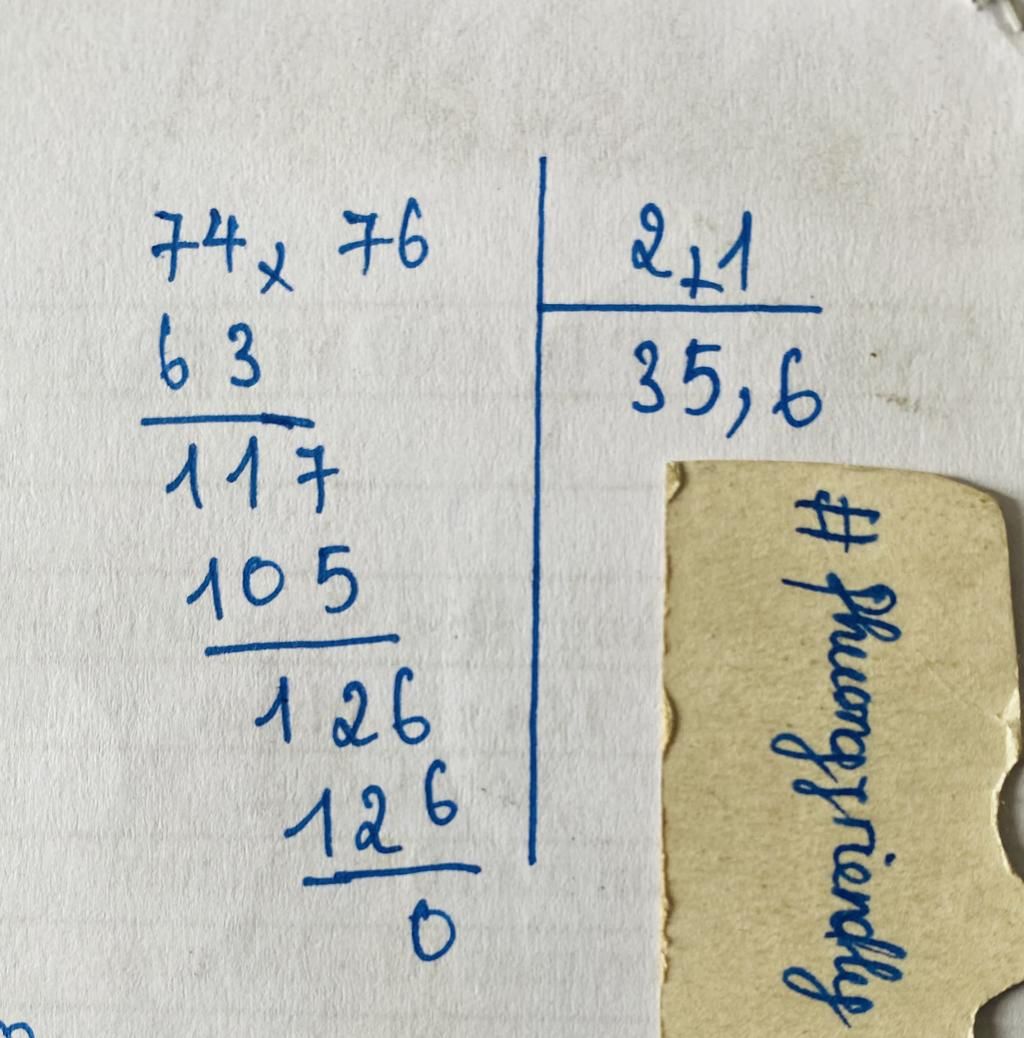 74,76
2,1
63
35,6
117
105
126
126
0
# phuongfriendly